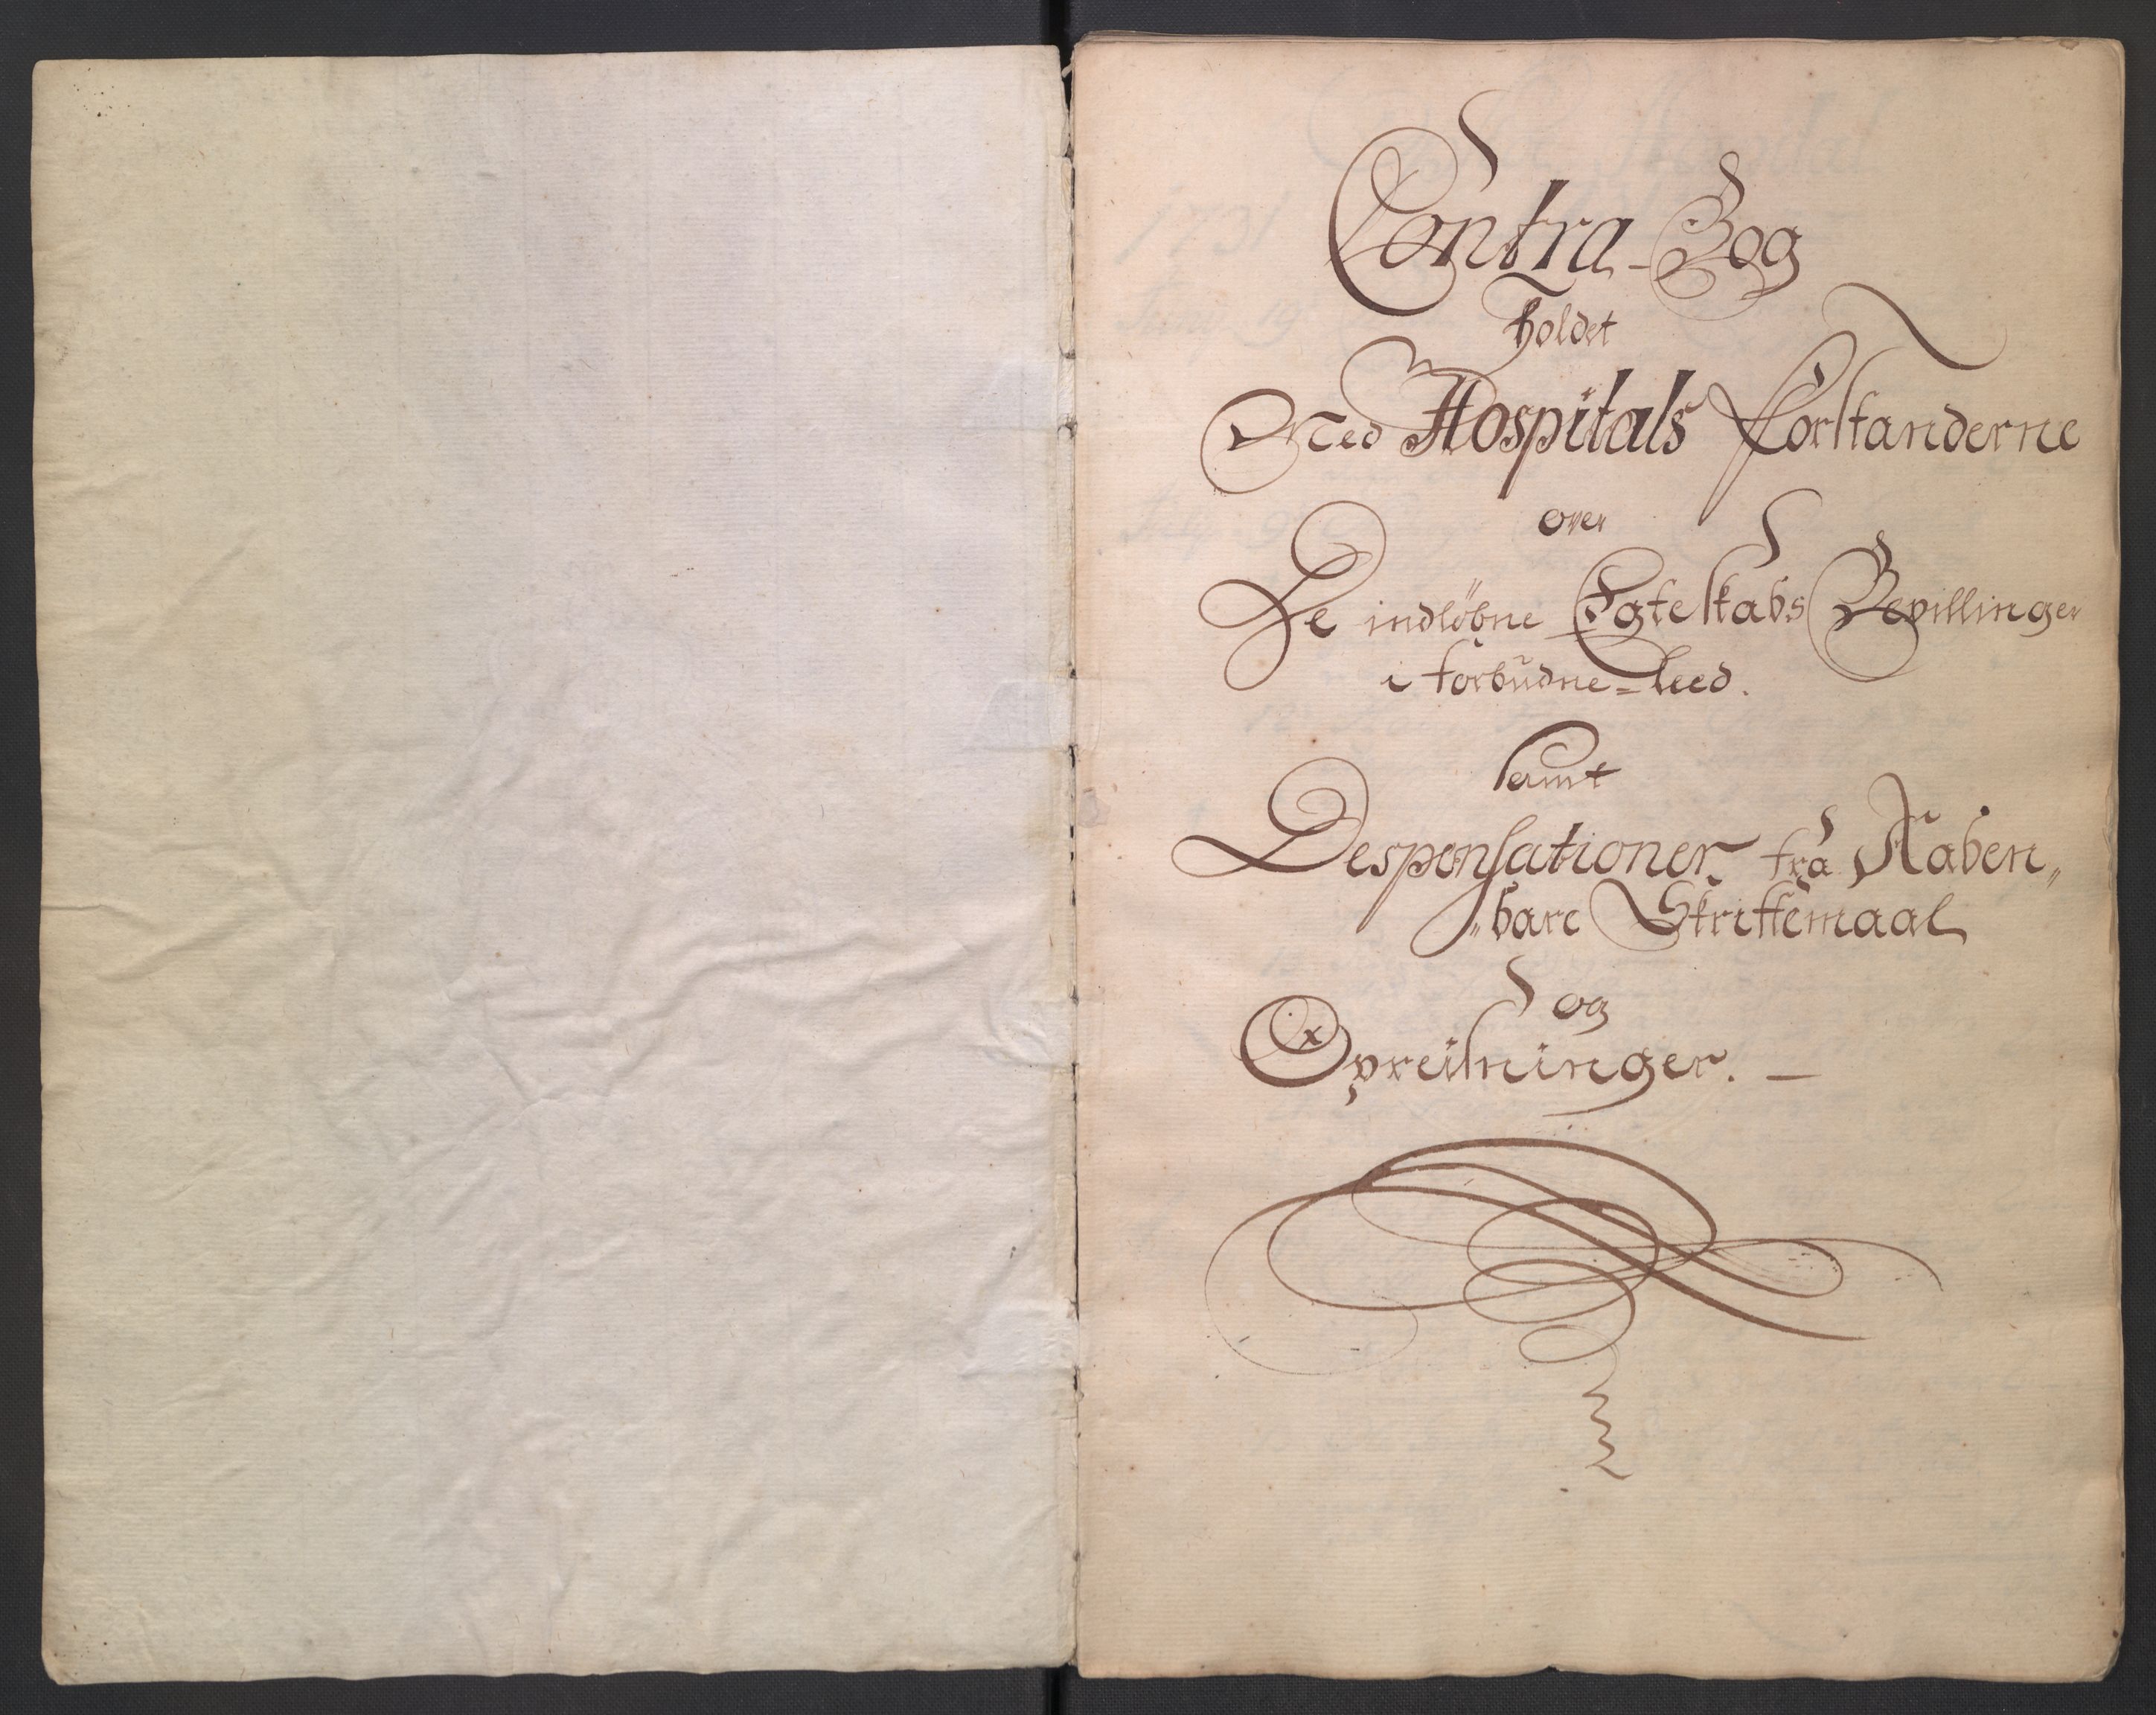 Contra-Bog
holdet
Med Hospitals Forstanderne
over
De indløbne Egteskabs Bevillinger
i forbudne=Leed.
samt
Despensationer fra Aaben„
„bare Skriftemaal
og
Opreisninger. —